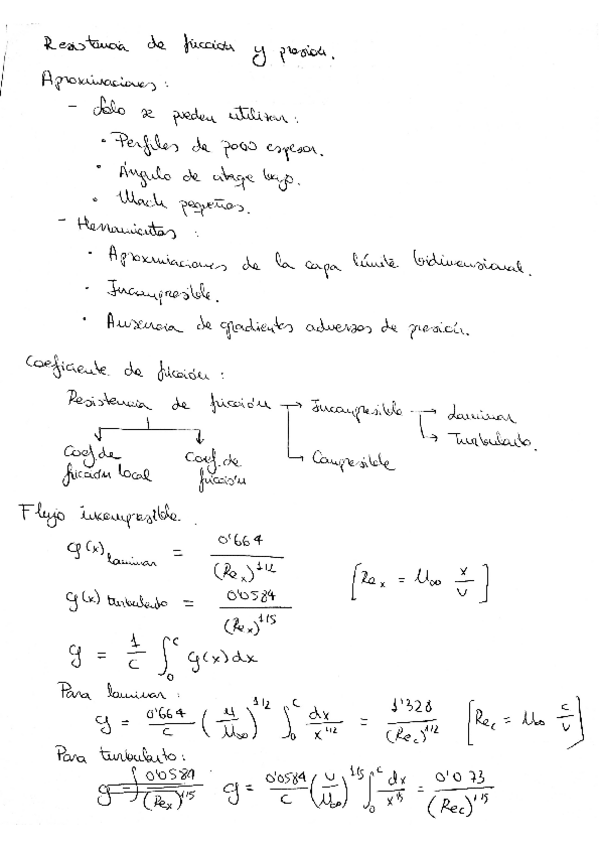 Resistencia de fricción y presión.
Aproximaciones:
- Solo se pueden utilizar:
• Perfiles de poco espesor.
• Ángulo de ataque bajo.
• Mach pequeños.
- Herramientas:
• Aproximaciones de la capa límite bidimensional.
• Incompresible.
• Ausencia de gradientes adversos de presión.
Coeficiente de fricción:
Resistencia de fricción → Incompresible → Laminar
↳ Turbulento.
Coef. de fricción local Coef. de fricción ↳ Compresible
Flujo incompresible.
cf(x) laminar = 0'664 / (Re_x)^1/2 [Re_x = U∞ x/υ]
cf(x) turbulento = 0'0584 / (Re_x)^1/5
cf = 1/c ∫_0^c cf(x)dx
Para laminar:
cf = 0'664/c (υ/U∞)^1/2 ∫_0^c dx/x^1/2 = 1'328/(Re_c)^1/2 [Re_c = U∞ c/υ]
Para turbulento:
cf = 0'0584/c (υ/U∞)^1/5 ∫_0^c dx/x^1/5 = 0'073/(Re_c)^1/5